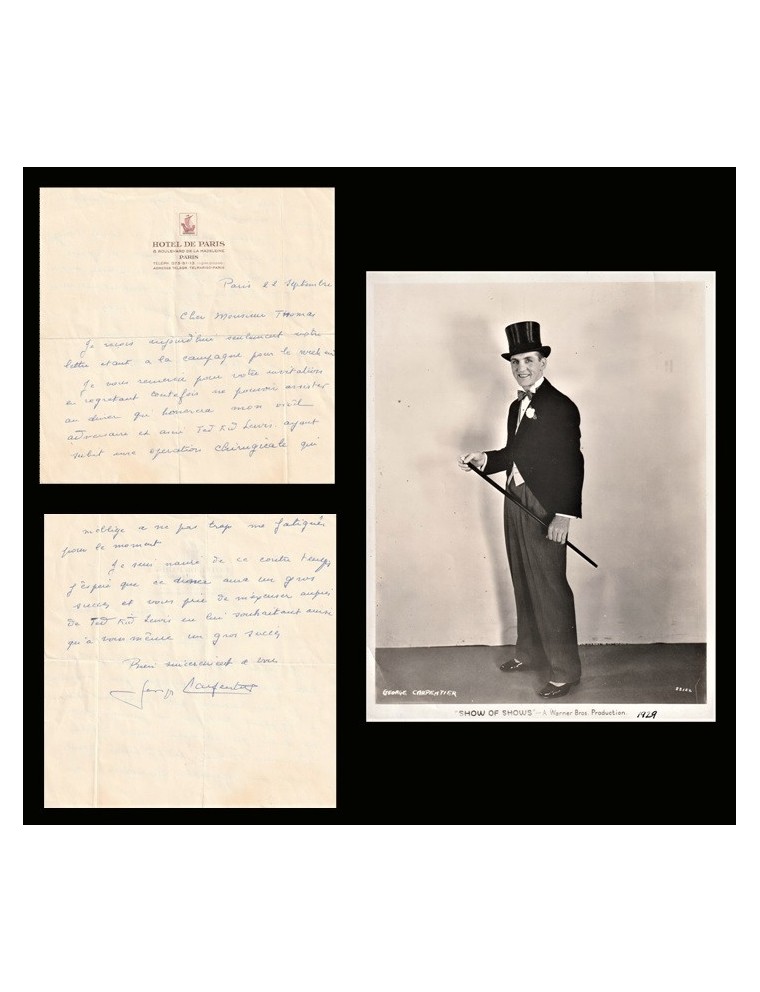 HOTEL DE PARIS
8 BOULEVARD DE LA MADELEINE
PARIS
TELEPH 073-51-13
ADRESSE TELEGR TELPARIS-PARIS
Paris Septembre
Cher Monsieur Thomas
Je reçois aujourd'hui seulement votre
lettre etant a la campagne pour le week
Je vous remercie pour votre invitation
regretant toutefois ne pouvoir assister
au diner qui honorera mon vieil
adversaire et ami Ted Kid Lewis ayant
subit une operation chirugicale qui
m'oblige a ne pas trop me fatiguer
pour le moment
Je suis navré de ce contre temps
j'espere que ce diner aura un gros
succes et vous prie de m'excuser aupres
de Ted Kid Lewis en lui souhaitant ainsi
qu'a vous même un gros succes
Bien sincerement a vous
Georges Carpentier
GEORGE CARPENTIER
"SHOW OF SHOWS" - A Warner Bros. Production. 1929